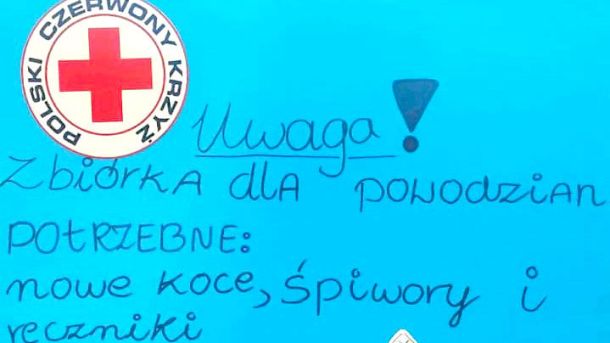 POLSKI CZERWONY KRZYŻ
Uwaga!
Zbiórka dla powodzian
POTRZEBNE:
nowe koce, śpiwory i
ręczniki